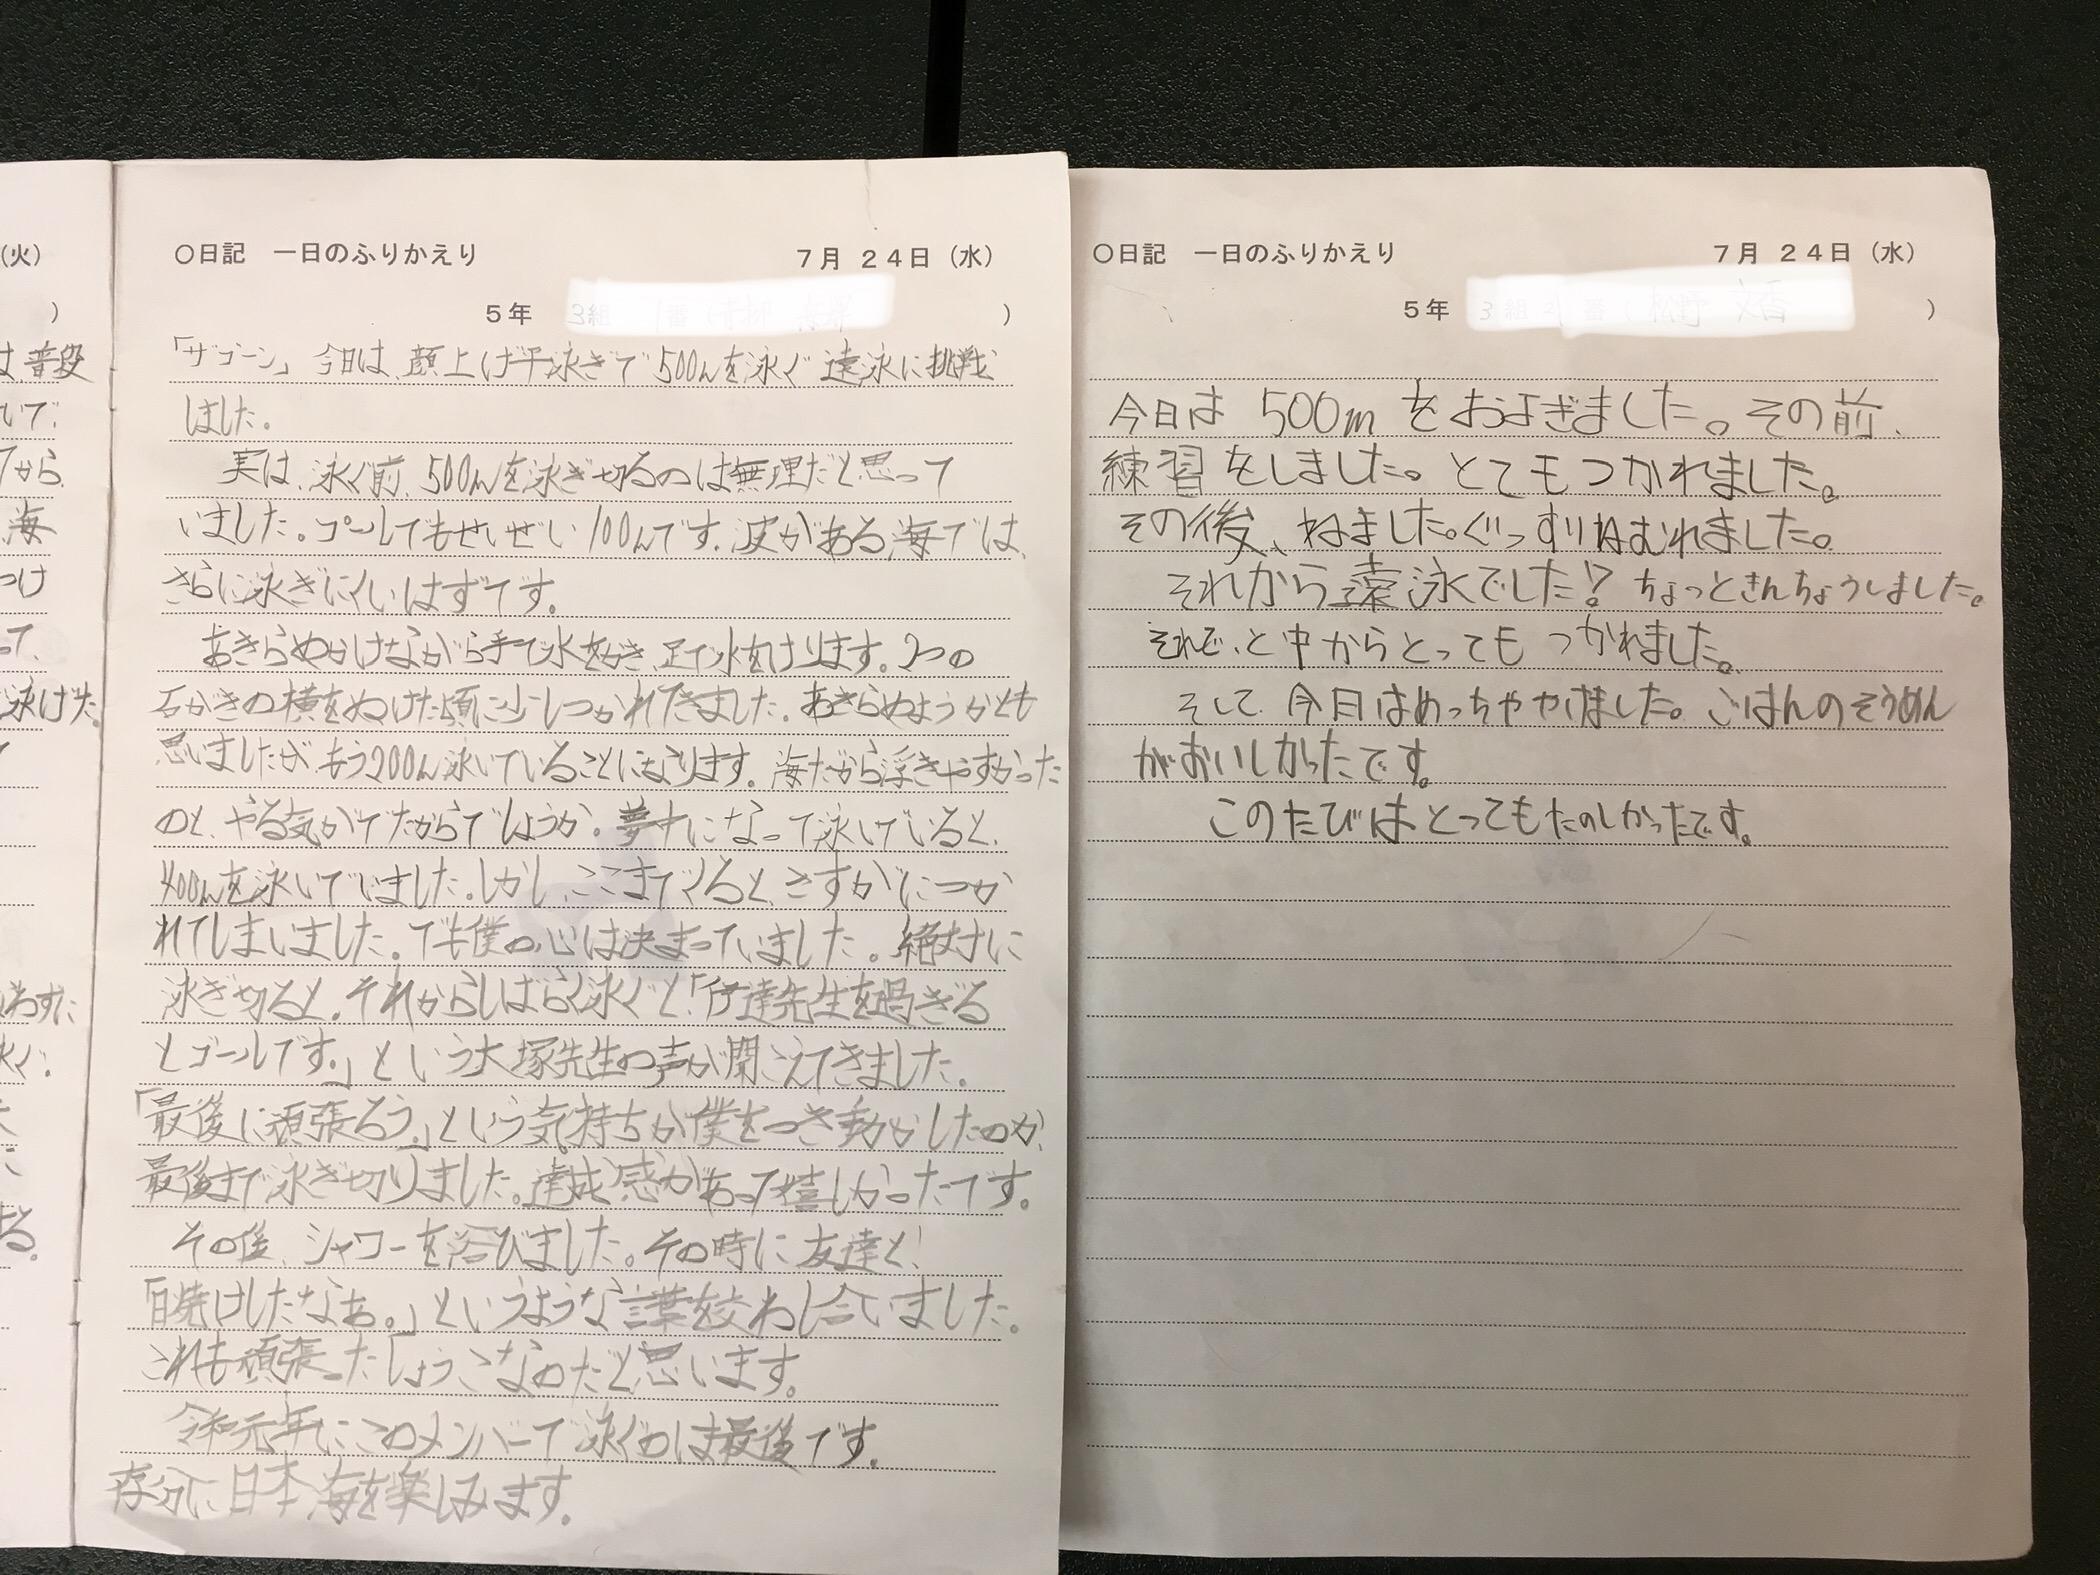 (火)
)
は、普段
いで、
から
海
つけ
って、
泳げた。
る。
○日記　一日のふりかえり　7月 24日（水）
5年　3組　1番（　）
「ザブーン」今日は、顔上げ平泳ぎで500mを泳ぐ遠泳に挑戦
しました。
実は、泳ぐ前、500mを泳ぎ切るのは無理だと思って
いました。プールでもせいぜい100mです。波がある海では、
さらに泳ぎにくいはずです。
あきらめかけながら手で水をかき、足で水をけります。2つの
石かきの横をぬけた頃に少しつかれてきました。あきらめようかとも
思いましたが、もう200m泳いでいることになります。海だから浮きやすかった
のと、やる気がでたからでしょうか。夢中になって泳いでいると、
400mを泳いでいました。しかし、ここまでくると、さすがにつか
れてしまいました。でも僕の心は決まっていました。絶対に
泳ぎ切ると。それからしばらく泳ぐと、「伊達先生を過ぎる
とゴールです。」という大塚先生の声が聞こえてきました。
「最後に頑張ろう。」という気持ちが僕をつき動かしたのか、
最後まで泳ぎ切りました。達成感があって嬉しかったです。
その後、シャワーを浴びました。その時に友達と、
「日焼けしたなぁ。」というような言葉を交わし合いました。
これも頑張ったしょうこなのだと思います。
令和元年にこのメンバーで泳ぐのは最後です。
存分に日本海を楽しみます。
○日記　一日のふりかえり　7月 24日（水）
5年　3組　2番（松野　文香）
今日は 500m をおよぎました。その前、
練習をしました。とてもつかれました。
その後、ねました。ぐっすりねむれました。
それから遠泳でした!? ちょっときんちょうしました。
それで、と中からとってもつかれました。
そして、今日はめっちゃやけました。ごはんのそうめん
がおいしかったです。
このたびはとってもたのしかったです。